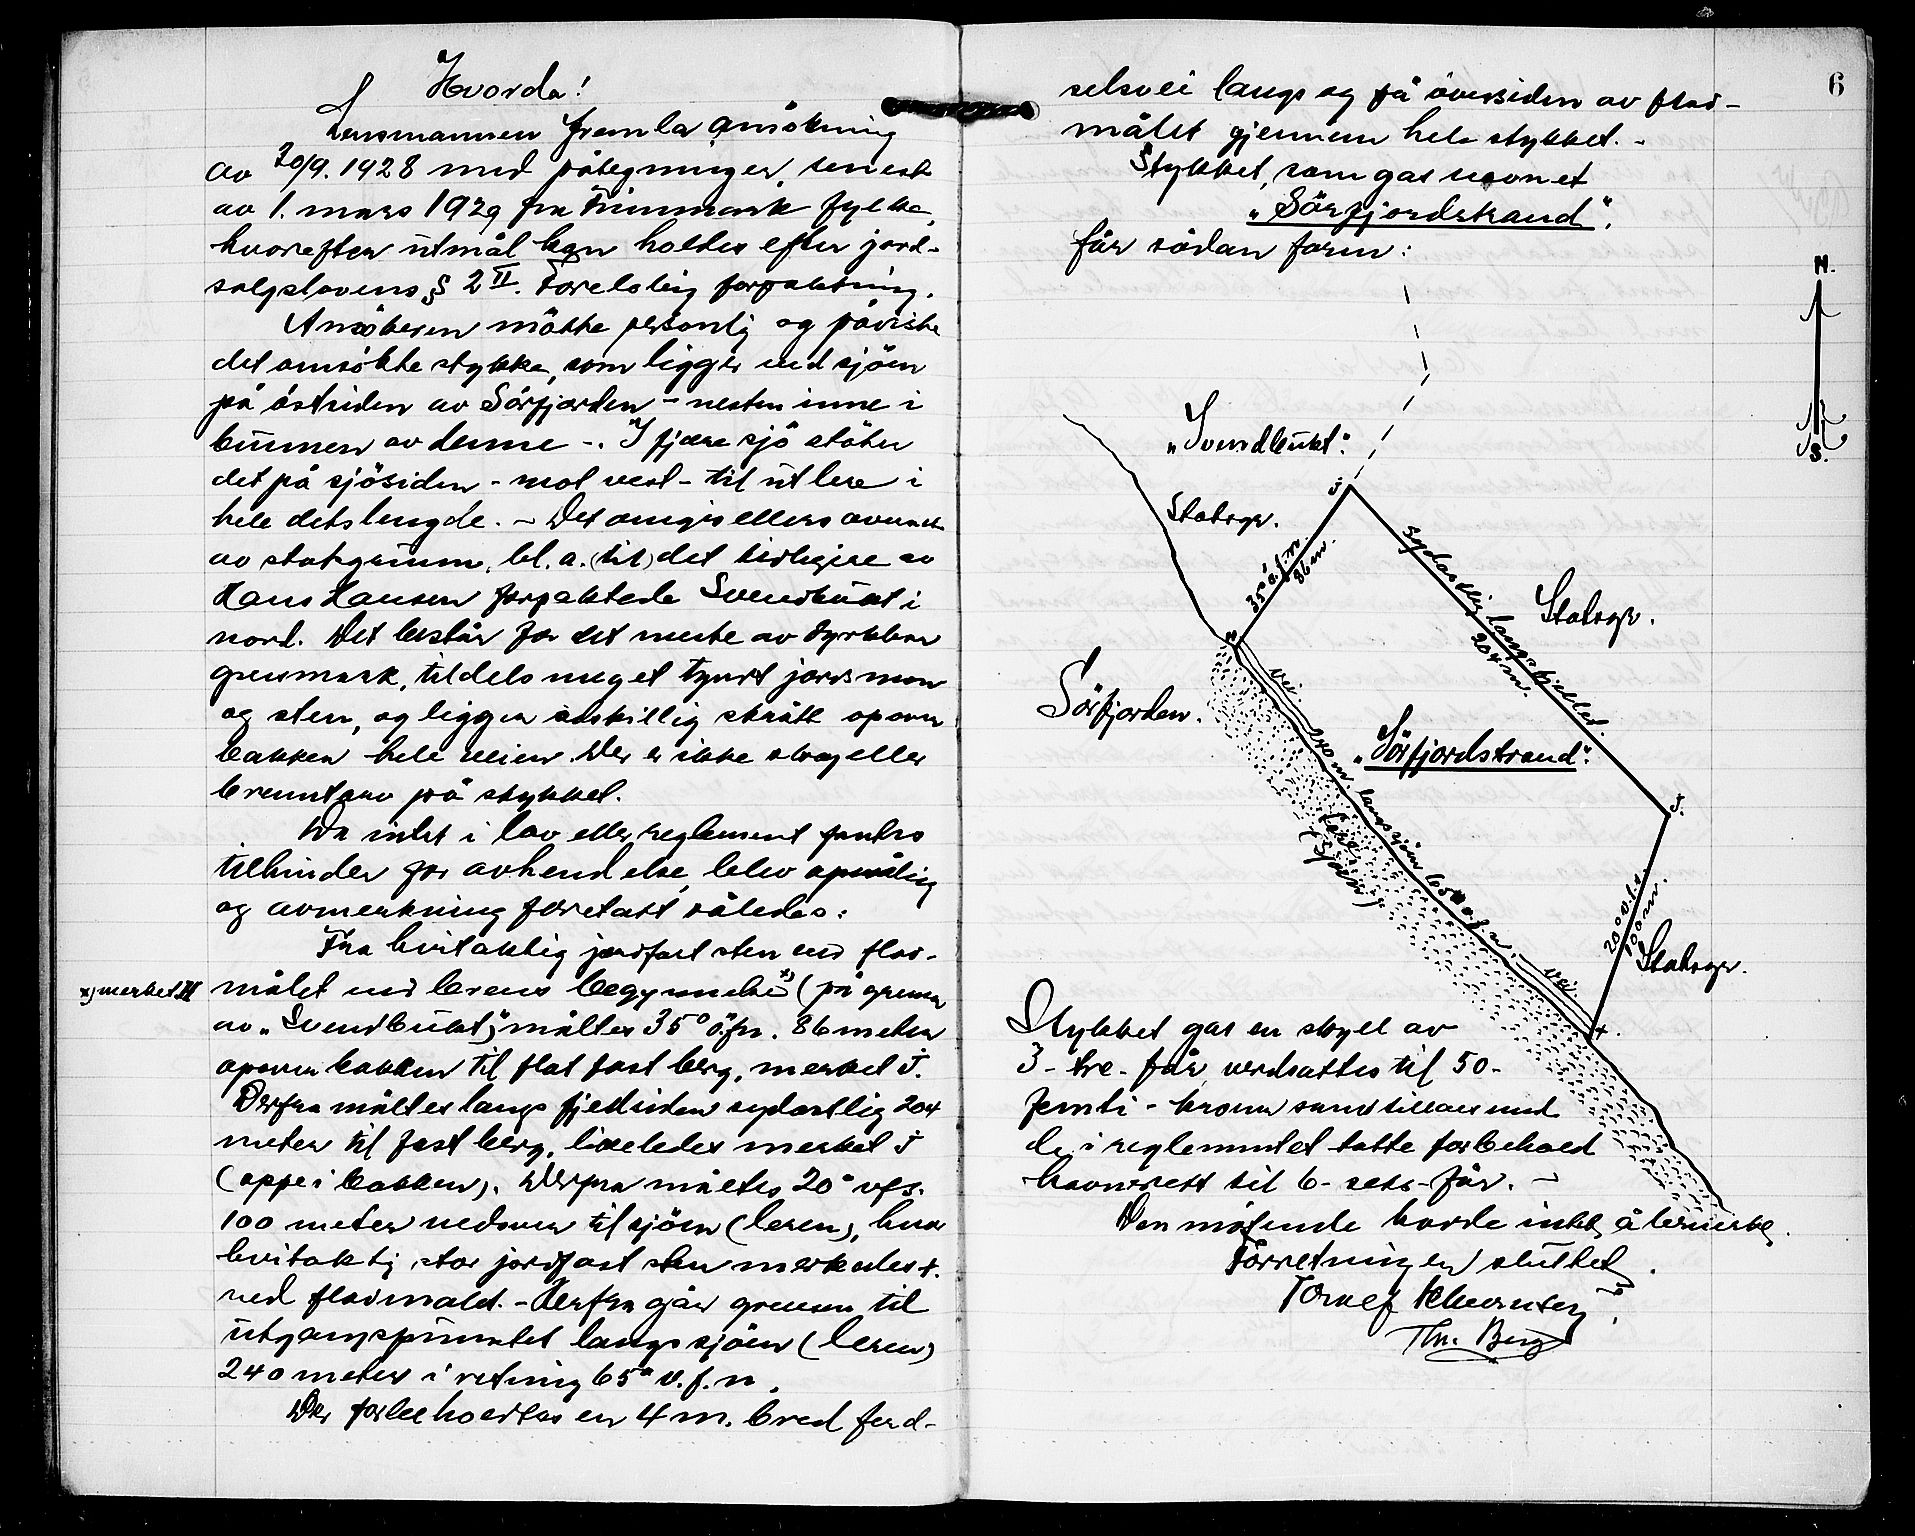 Hvorda!
Lensmannen fremla ansökning
av 20/9. 1928 med påtegninger, senest
av 1. mars 1929 fra Finnmark fylke,
hvorefter utmål kan holdes efter jord-
salgslovens § 2 II. Foreløbig forpaktning.
Ansökeren mötte personlig og påviste
det ansökte stykke, som ligger ved sjöen
på östsiden av Sörfjorden - nesten inne i
bunnen av denne -. I fjære sjö stöter
det på sjösiden - mot vest - til utlere i
hele dets lengde. - Det omgis ellers overalt
av statsgrunn, bl. a. (til) det tidligere av
Hans Hansen forpaktede Svendbukt i
nord. Det består for det meste av dyrkbar
gressmark, tildels meget tynt jordsmon
og sten, og ligger adskillig skrått opover
bakken hele veien. Der er ikke skog eller
brenntorv på stykket.
Da intet i lov eller reglement fantes
tilhinder for avhendelse, blev opmåling
og avmerkning foretatt således:
Fra hvitaktig jordfast sten ved flod-
målet ved lerens begynnelse x) (på grensen
x) merket II
av "Svendbukt") måltes 35° ö.f.n. 86 meter
opover bakken til flat fast berg, merket j.
Derfra måltes langs fjellsiden sydostlig 204
meter til fast berg, likeledes merket j
(oppe i bakken). Derfra måltes 20° v.f.s.
100 meter nedover til sjöen (leren), hvor
hvitaktig, stor jordfast sten merkedes +.
ved flodmålet. - Derfra går grensen til
utgangspunktet langs sjöen (leren)
240 meter i retning 65° v.f.n.
Der forbeholdtes en 4 m. bred ferd-
6
selsvei langs og på översiden av flod-
målet gjennem hele stykket. -
Stykket, som gas navnet
"Sörfjordstrand".
får sådan form:
N.
S.
"Svendbukt".
Statsgr.
j
35° ö.f.n.
86 m.
sydostlig langs fjellet.
204 m.
Statsgr.
Sörfjorden.
Vei
"Sörfjordstrand".
240 m. langs sjöen 65° v.f.n.
Lere
(Sjöen)
j.
20° v.f.s.
100 m.
Statsgr.
vei
+.
Stykket gas en skyld av
3 - tre - får verdsattes til 50 -
femti - kroner samt tillaes med
de i reglementet tatte forbehold
havnerett til 6 - seks - får. -
Den mötende hadde intet å bemerke.
Forretningen sluttet.
Thr. Berg